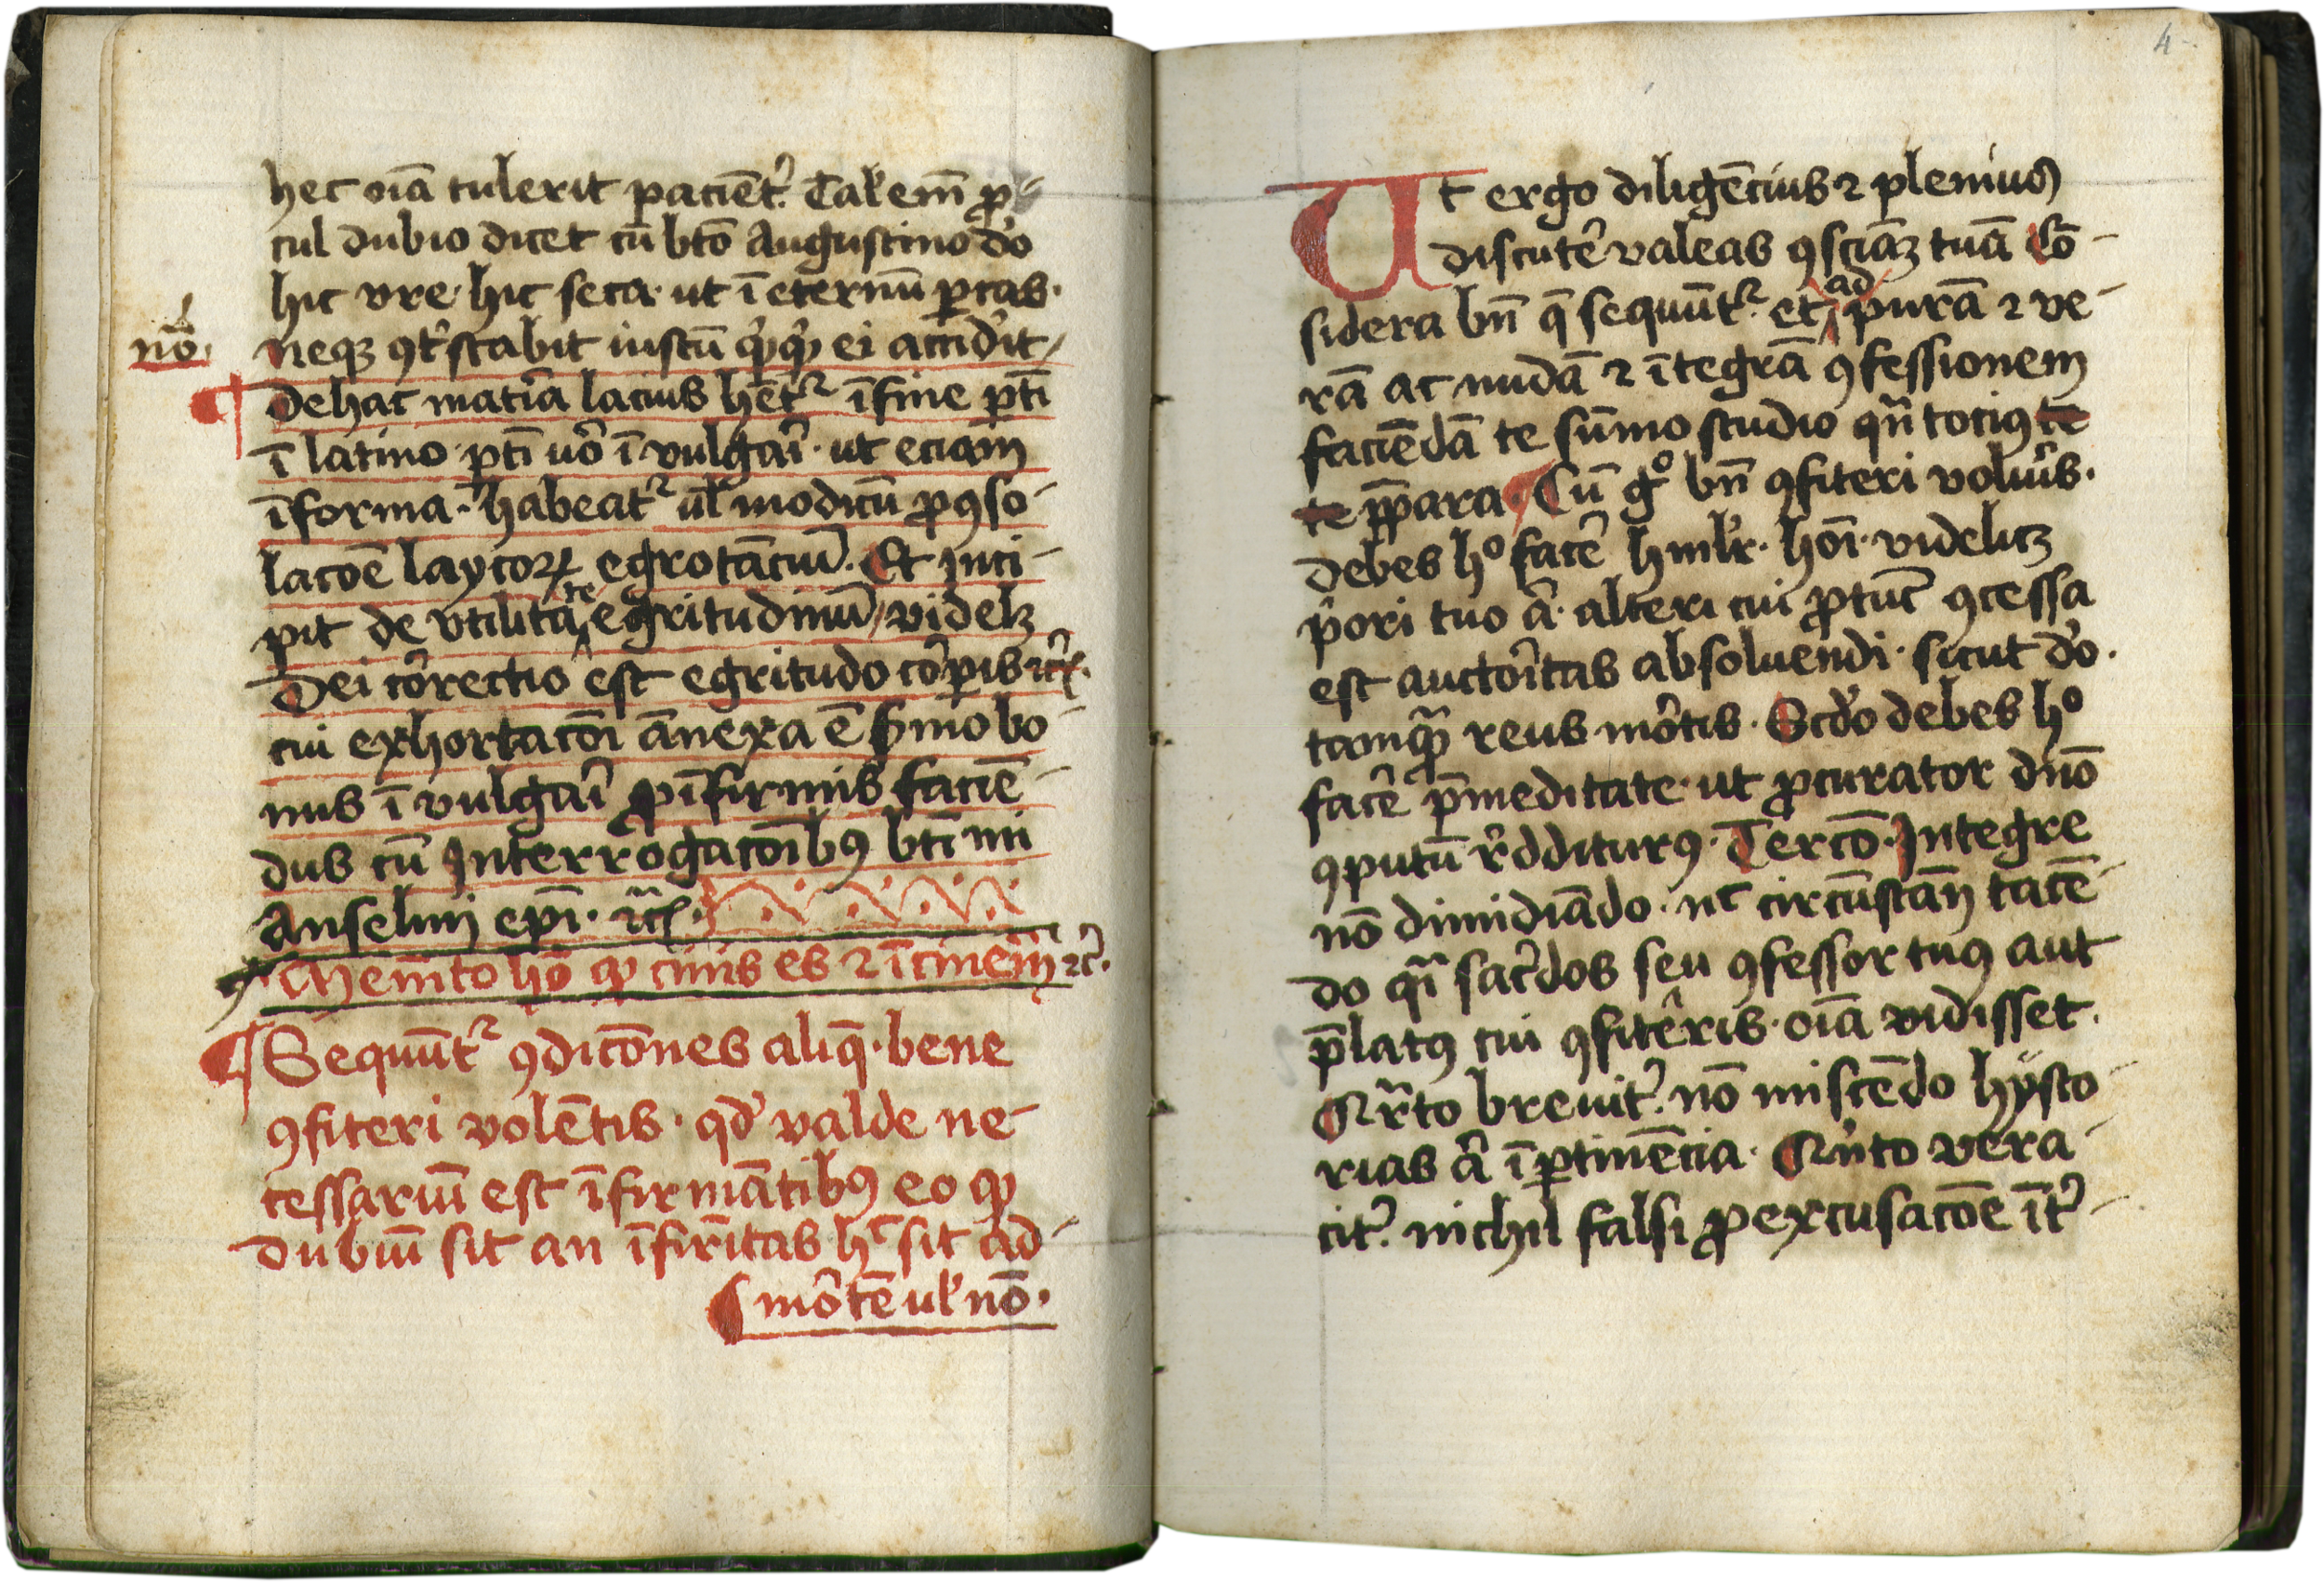 hec oīa tulerit pacient᷑. Tal᷑ em̄ ꝓ
cul dubio dicet cū bt̄o Augustino do
hic vre· hic seca· ut ī eternū ꝑcas·
nō· neqꝫ ꝯt᷑stabit iustū ei accid᷑it
¶ De hac mat᷑ia lacius hēt᷑ ī fine
ī latino · u᷑o ī vulgai᷑ · ut eciam
ī forma · habeat᷑ ul᷑ modicū ꝓ ꝯso-
lacōe laycoꝝ egrotāciū. Et inci-
pit de vtilitate egritudinū videlꝫ
Dei cor᷑rectio est egritudo cor᷑pis ⁊c᷑.
cui exhortacōi ānexa ē s᷑mo bo-
nus ī vulgai᷑ ꝓ īfirmis faciē-
dus cū Interrogacōibꝰ bt̄i mi
Anselmi ep̄i · ⁊c᷑ ·
Mem̄to hō ꝙ cinis es ⁊ ī cinem̄ ⁊c᷑.
¶ Sequūt᷑ ꝯdicōnes aliq̄ · bene
ꝯfiteri volētis · qd᷑ valde ne-
cessariū est īfirmātibꝰ eo ꝙ
dubiū sit an īfirm̄itas hͨ sit ad
mor᷑tē ul᷑ nō.
4
Ut ergo diligēcius ⁊ plenius
discute᷑ valeas ꝯsciāꝫ tuā Cō-
sidera bn̄ q̄ sequūt᷑ · et ad purā ⁊ ve-
rā ac nudā ⁊ ītegrā ꝯfessionem
faciēdā te sūmo studio qn̄tociꝰ te
te p̄para · Cū gͦ bn̄ ꝯfiteri volu᷑is·
debes hͦ face᷑ hmil᷑r· hōi· videlicꝫ
p᷑ori tuo a᷑· alteri cui ꝓ tūc ꝯcessa
est auctor᷑itas absoluendi· sicut do·
tamqᷓꝫ reus mor᷑tis · Scd᷑o debes hͦ
face᷑ p̄meditate· ut ꝓcurator dn̄o
ꝯputū r᷑dditurꝰ · Tercō · Integre
nō dimidiādo · nͨ circūstan̄ tacē-
do qᷓi sac᷑dos seu ꝯfessor tuꝰ aut
p̄latꝰ cui ꝯfite᷑ris · oīa vidisset·
Qᷓrto breuit᷑. nō miscēdo hÿsto-
rias a᷑ īꝑtinēcia · Qu᷑ito vera-
cit᷑. nichil falsi ꝓ excusacōe īt᷑-